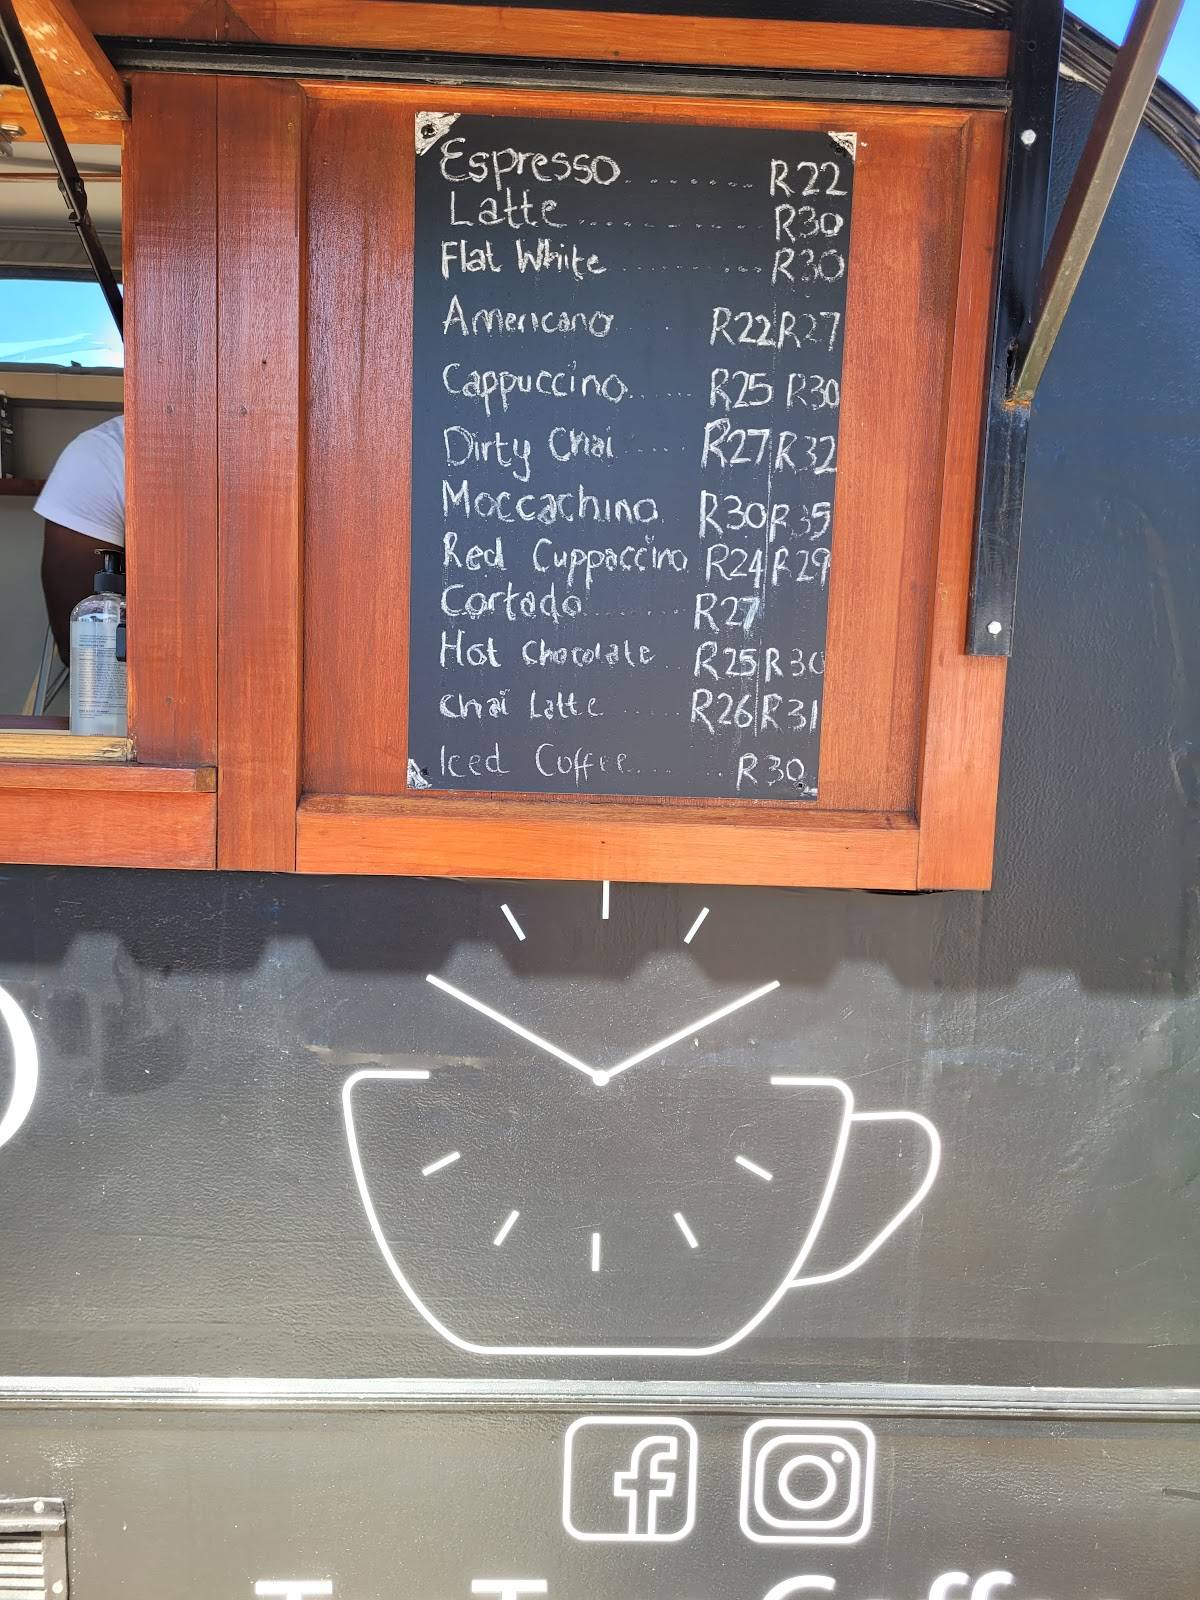 Espresso ........ R22
Latte ........ R30
Flat White ........ R30
Americano .. R22|R27
Cappuccino ..... R25 R30
Dirty Chai .... R27|R32
Moccachino R30|R35
Red Cuppaccino R24|R29
Cortado ....... R27
Hot Chocolate .. R25|R30
Chai Latte ..... R26|R31
Iced Coffee ...... R30